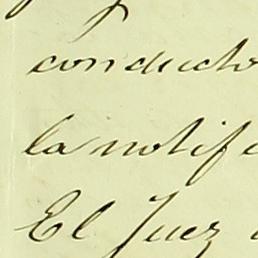 conducto
la notif
El Juez